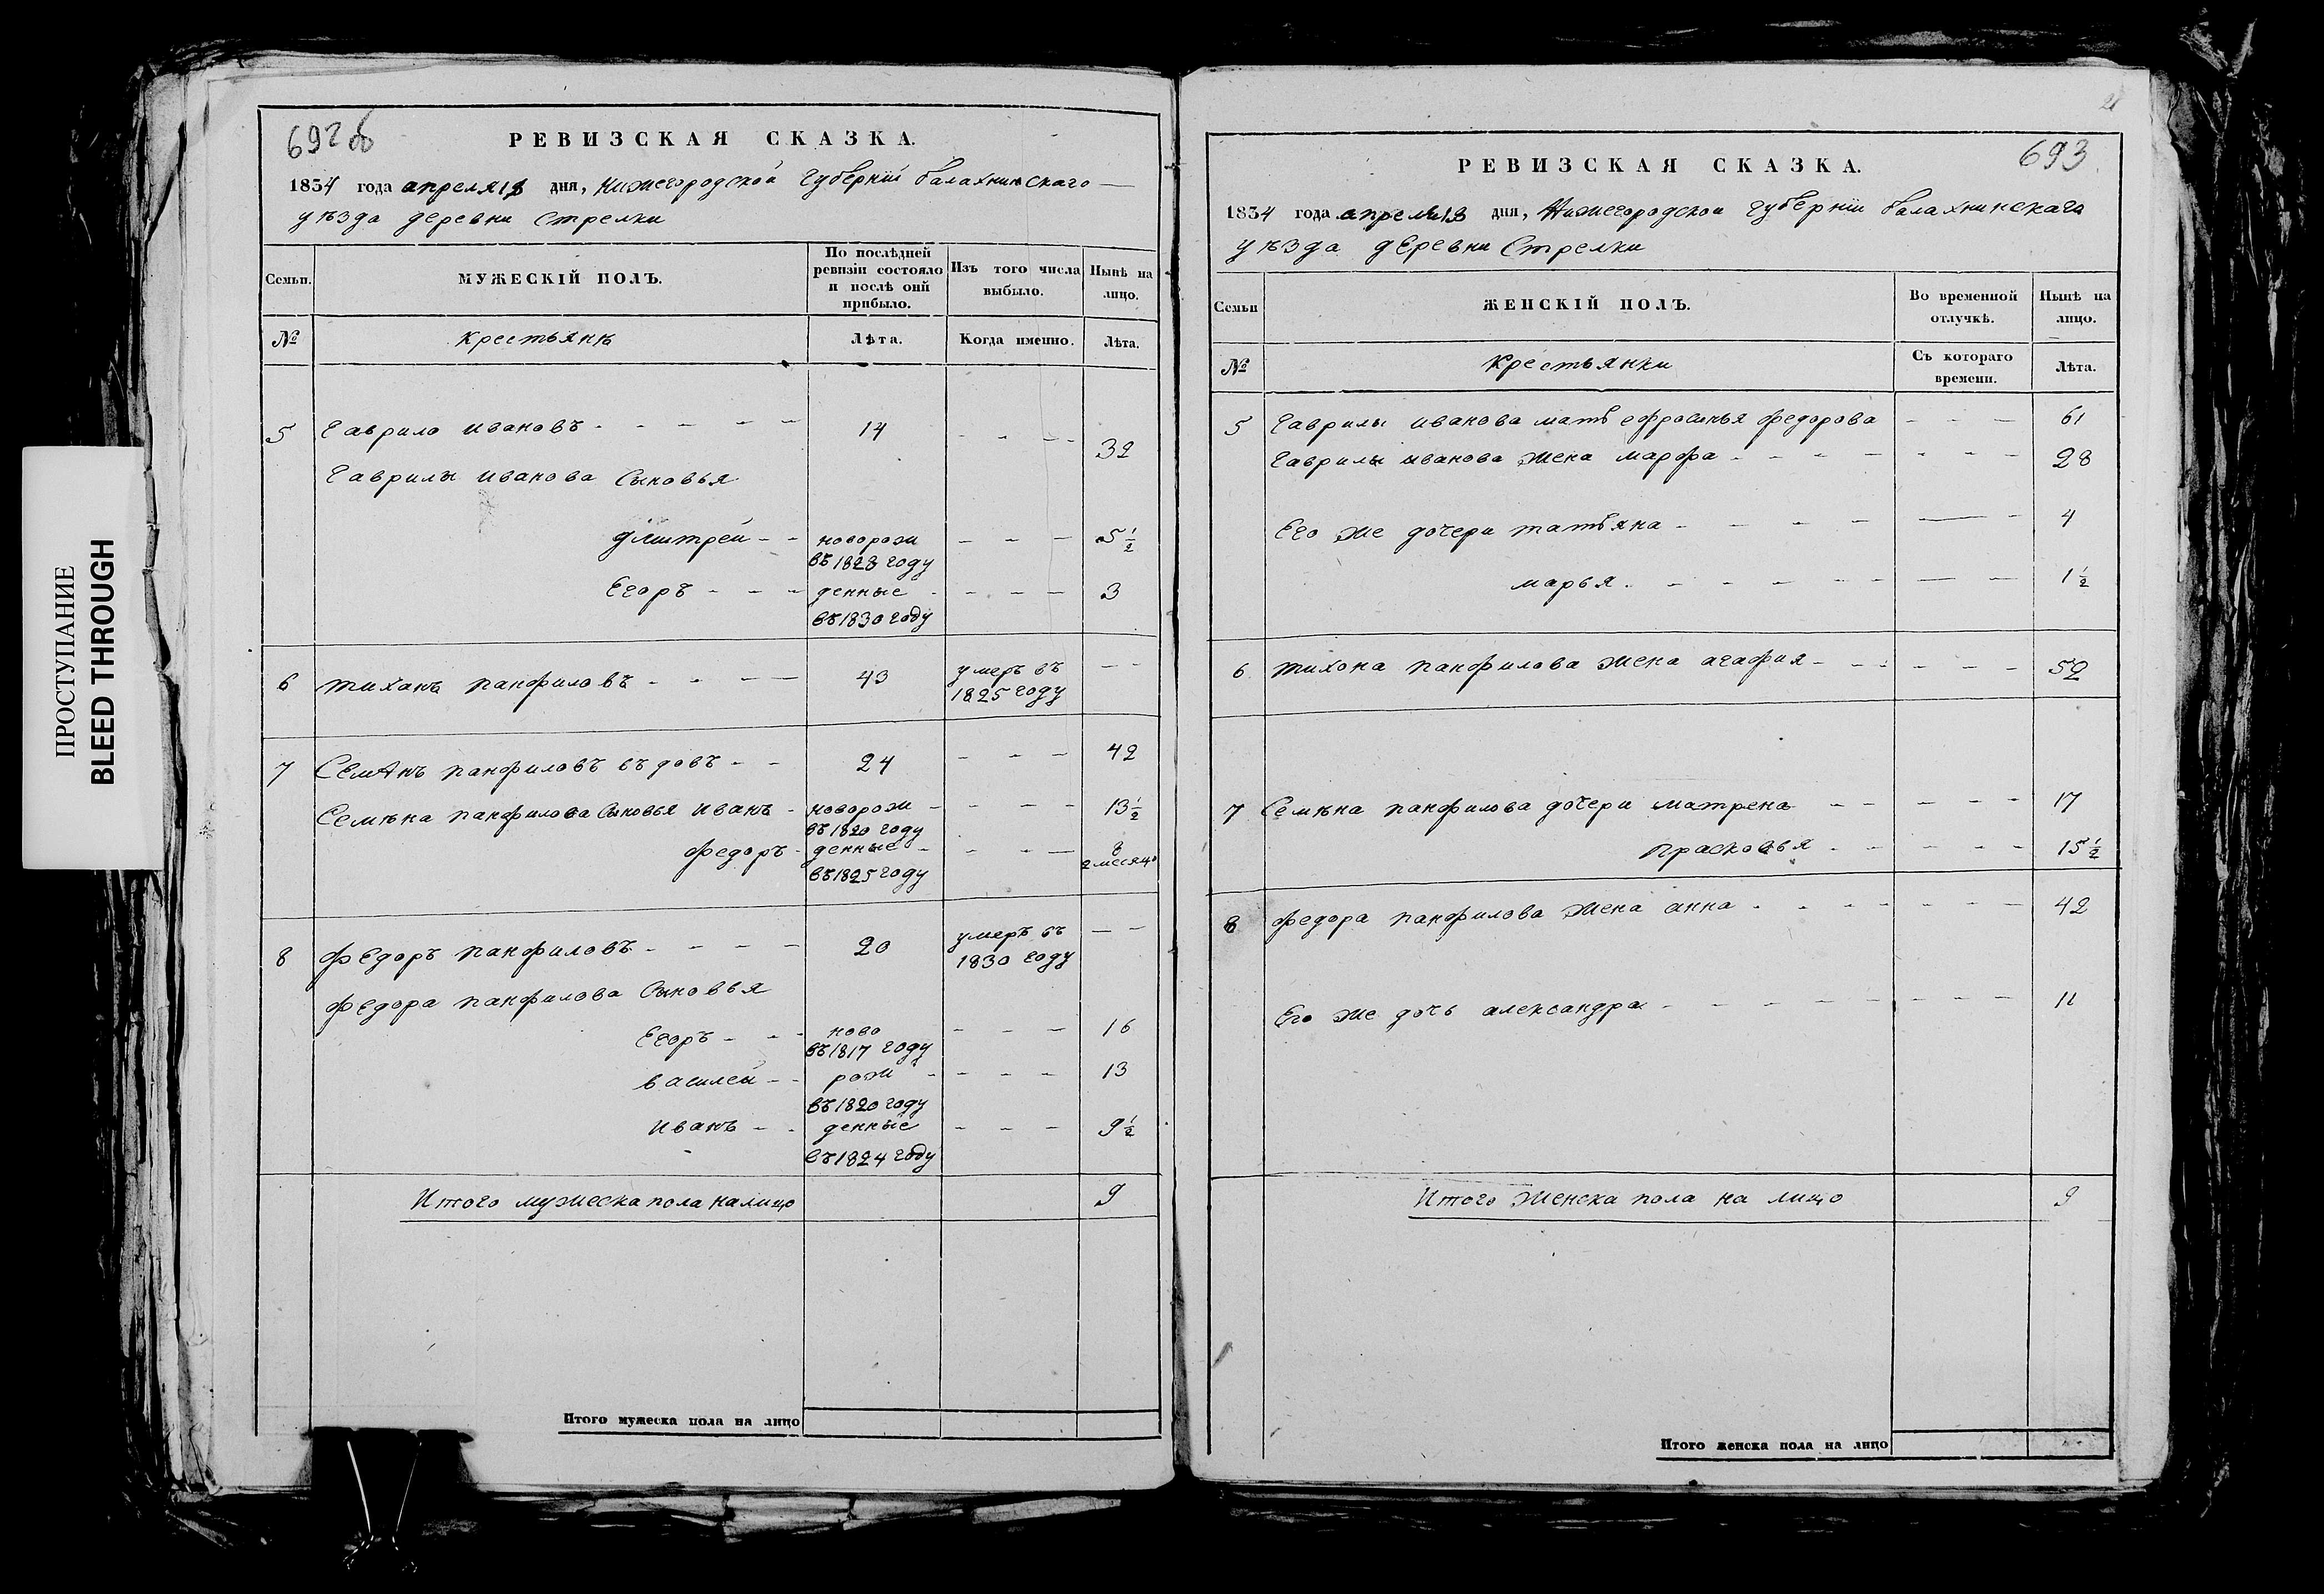 ПРОСТУПАНИЕ
BLEED THROUGH
692 об
РЕВИЗСКАЯ СКАЗКА.
1834 года апреля 18 дня, Нижегородской губерніи балахнинскаго
уѣзда деревни Стрелки
Семьи.
МУЖЕСКІЙ ПОЛЪ.
По послѣдней
ревизіи состояло
и послѣ оной
прибыло.
Изъ того числа
выбыло.
Нынѣ на
лицо.
№
крестьянѣ
Лѣта.
Когда именно.
Лѣта.
5 Гаврило ивановъ - - - - - 14 - - - - 32
Гаврилы иванова Сыновья
дмитрей - - новорож - - - 5 1/2
въ 1828 году
Егоръ - - - денные - - - - 3
въ 1830 году
6 тиханъ панфиловъ - - - - 43 умеръ въ - -
1825 году
7 Семѣнъ панфиловъ въдовъ - - 24 - - - 42
Семѣна панфилова Сыновья иванъ - новорож - - - - 13 1/2
въ 1820 году
федоръ - денные - - - - 8
въ 1825 году 2 месяцо
8 федоръ панфиловъ - - - - 20 умеръ въ - -
1830 году
федора панфилова Сыновья
Егоръ - - - ново - - - 16
въ 1817 году
василеи - - рож - - - - 13
въ 1820 году
иванъ - - денные - - - 9 1/2
въ 1824 году
Итого мужеска пола налицо 9
Итого мужеска пола на лицо
693
РЕВИЗСКАЯ СКАЗКА.
1834 года апреля 18 дня, Нижегородской губерніи балахнинскаго
уѣзда деревни Стрелки
Семьи
ЖЕНСКІЙ ПОЛЪ.
Во временной
отлучкѣ.
Нынѣ на
лицо.
№
крестьянки
Съ котораго
времени.
Лѣта.
5 Гаврилы иванова мать ефросинья федорова - - - 61
Гаврилы иванова жена марфа - - - - - - - - 28
Его же дочери татьяна - - - - - - 4
марья - - - - - - - - 1 1/2
6 тихона панфилова жена агафия - - - - - - 52
7 Семѣна панфилова дочери матрена - - - - - 17
прасковья - - - - - - 15 1/2
8 федора панфилова жена анна - - - - - - - - 42
Его же дочь александра - - - - - - - - - 11
Итого женска пола на лицо 9
Итого женска пола на лицо